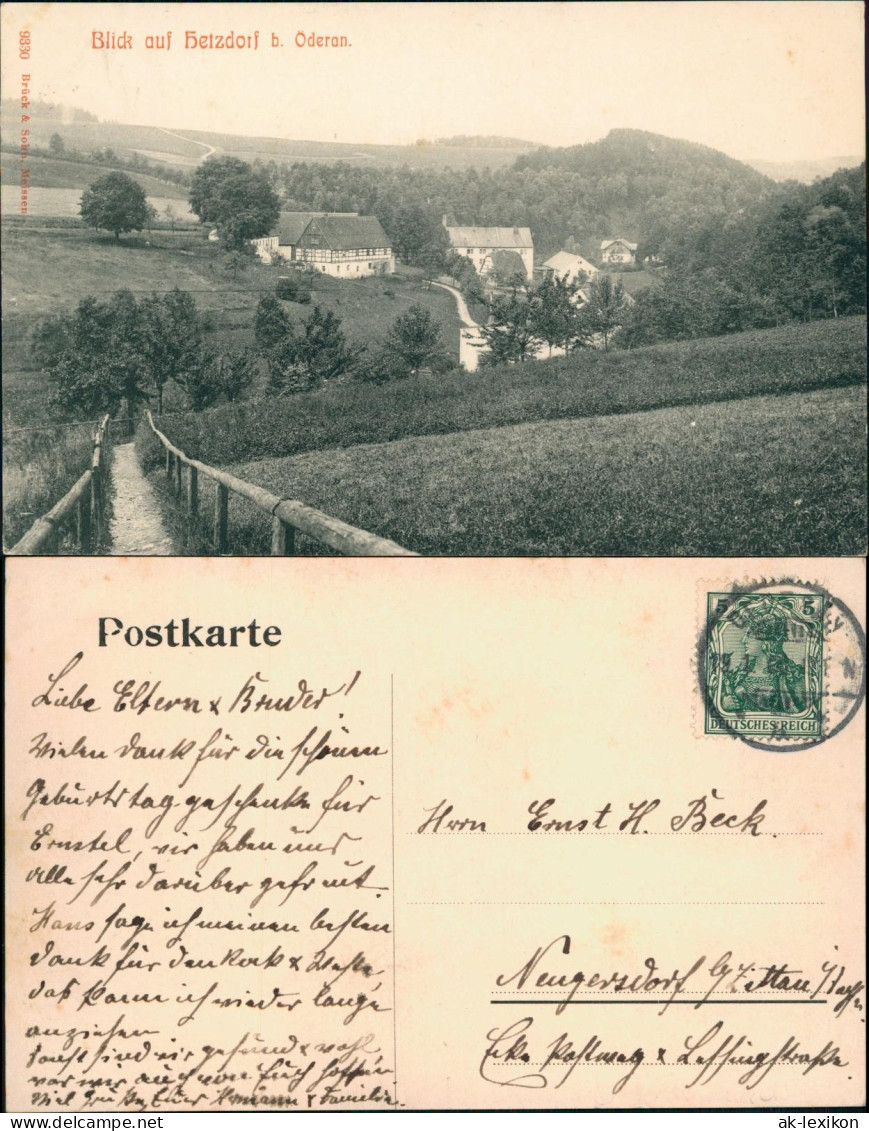 Blick auf Hetzdorf b. Öderan.
9330 Brück & Sohn, Meissen
Postkarte
5 5
DEUTSCHES REICH
Liebe Eltern & Bruder!
Vielen Dank für die schönen
Geburtstag geschenke für
Ernstel, wir haben uns
alle sehr darüber gefreut.
Hans sage ich meinen besten
Dank für den Rock & Weste,
das kann ich wieder lange
anziehen
sonst sind wir gesund & wohl
was wir auch von Euch hoffen
Viel Grüße Euer Hermann & Familie.
Herrn Ernst H. Beck.
Neugersdorf b/Zittau i/Sachsen
Ecke Postweg & Lessingstraße
delcampe.net
ak-lexikon